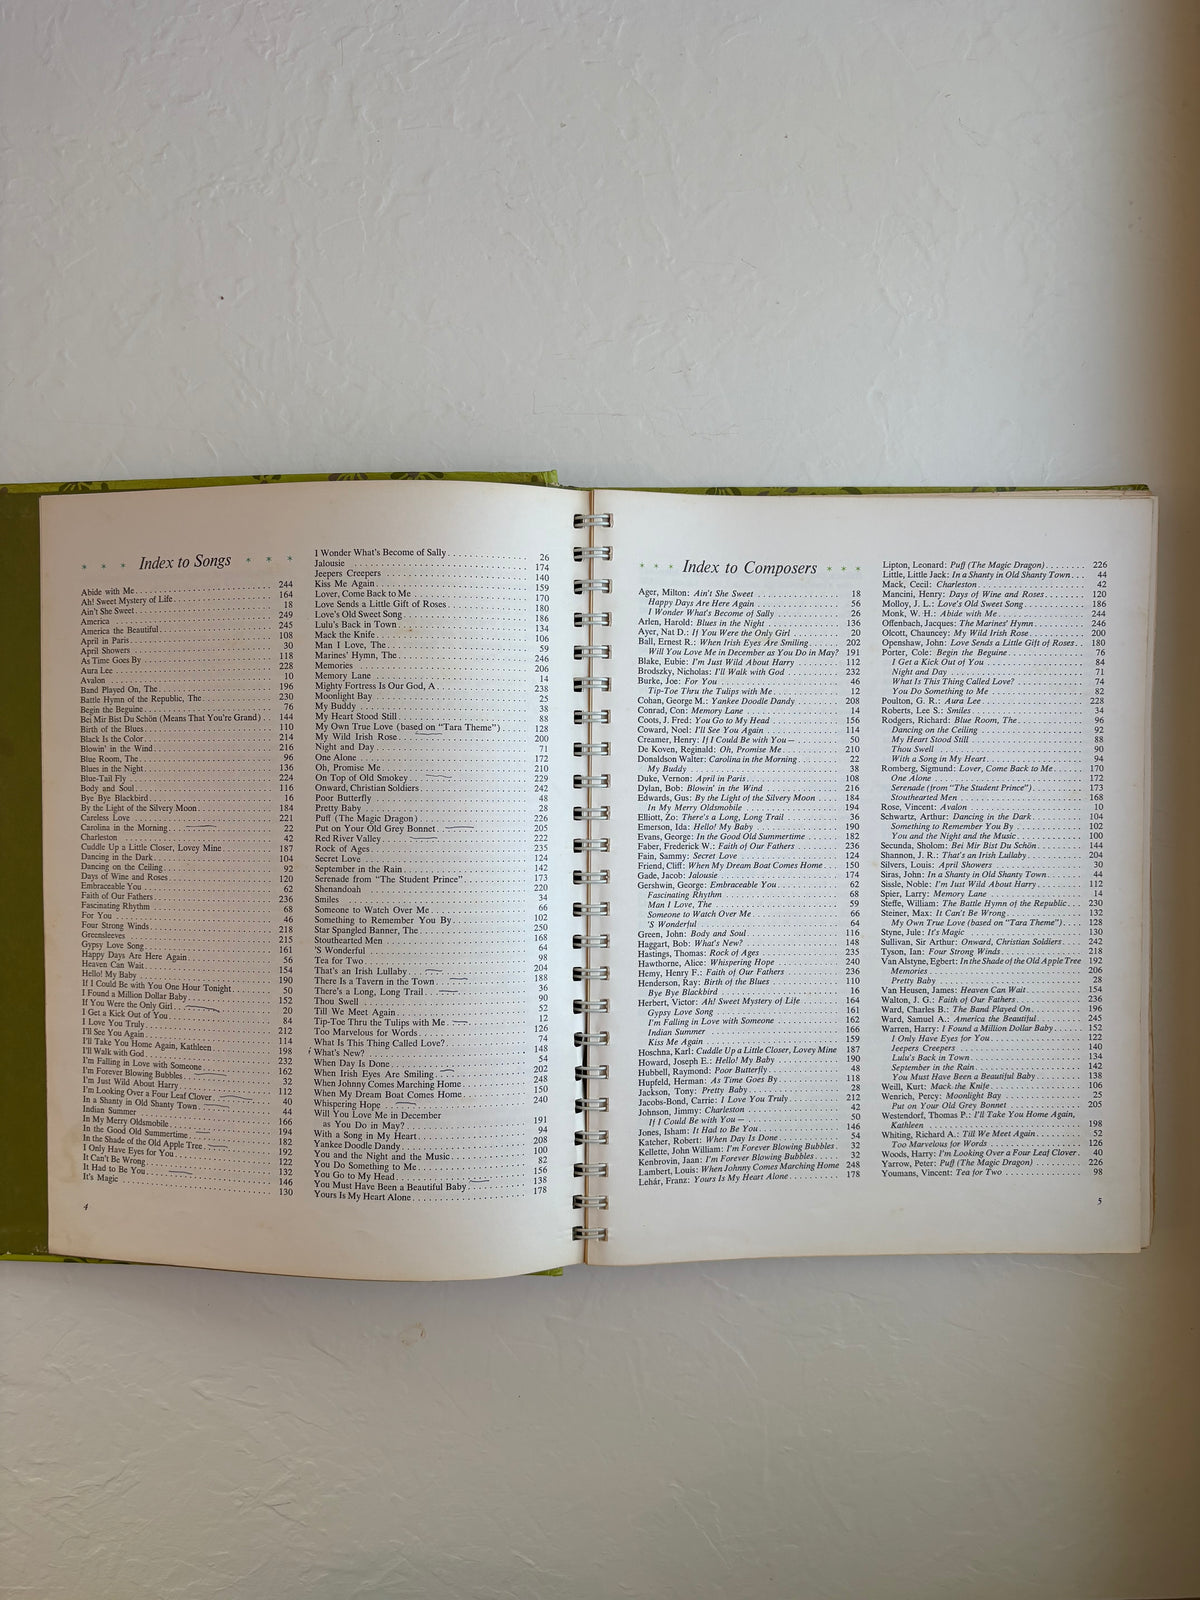 * * * Index to Songs * * *
Abide with Me .... 244
Ah! Sweet Mystery of Life .... 164
Ain't She Sweet .... 18
America .... 249
America the Beautiful .... 245
April in Paris .... 108
April Showers .... 30
As Time Goes By .... 118
Aura Lee .... 228
Avalon .... 10
Band Played On, The .... 196
Battle Hymn of the Republic, The .... 230
Begin the Beguine .... 76
Bei Mir Bist Du Schön (Means That You're Grand) .. 144
Birth of the Blues .... 110
Black Is the Color .... 214
Blowin' in the Wind .... 216
Blue Room, The .... 96
Blues in the Night .... 136
Blue-Tail Fly .... 224
Body and Soul .... 116
Bye Bye Blackbird .... 16
By the Light of the Silvery Moon .... 184
Careless Love .... 221
Carolina in the Morning .... 22
Charleston .... 42
Cuddle Up a Little Closer, Lovey Mine .... 187
Dancing in the Dark .... 104
Dancing on the Ceiling .... 92
Days of Wine and Roses .... 120
Embraceable You .... 62
Faith of Our Fathers .... 236
Fascinating Rhythm .... 68
For You .... 46
Four Strong Winds .... 218
Greensleeves .... 215
Gypsy Love Song .... 161
Happy Days Are Here Again .... 56
Heaven Can Wait .... 154
Hello! My Baby .... 190
If I Could Be with You One Hour Tonight .... 50
I Found a Million Dollar Baby .... 152
If You Were the Only Girl .... 20
I Get a Kick Out of You .... 84
I Love You Truly .... 212
I'll See You Again .... 114
I'll Take You Home Again, Kathleen .... 198
I'll Walk with God .... 232
I'm Falling in Love with Someone .... 162
I'm Forever Blowing Bubbles .... 32
I'm Just Wild About Harry .... 112
I'm Looking Over a Four Leaf Clover .... 40
In a Shanty in Old Shanty Town .... 44
Indian Summer .... 166
In My Merry Oldsmobile .... 194
In the Good Old Summertime .... 182
In the Shade of the Old Apple Tree .... 192
I Only Have Eyes for You .... 122
It Can't Be Wrong .... 132
It Had to Be You .... 146
It's Magic .... 130
4
I Wonder What's Become of Sally .... 26
Jalousie .... 174
Jeepers Creepers .... 140
Kiss Me Again .... 159
Lover, Come Back to Me .... 170
Love Sends a Little Gift of Roses .... 180
Love's Old Sweet Song .... 186
Lulu's Back in Town .... 134
Mack the Knife .... 106
Man I Love, The .... 59
Marines' Hymn, The .... 246
Memories .... 206
Memory Lane .... 14
Mighty Fortress Is Our God, A .... 238
Moonlight Bay .... 25
My Buddy .... 38
My Heart Stood Still .... 88
My Own True Love (based on “Tara Theme”) .... 128
My Wild Irish Rose .... 200
Night and Day .... 71
One Alone .... 172
Oh, Promise Me .... 210
On Top of Old Smokey .... 229
Onward, Christian Soldiers .... 242
Poor Butterfly .... 48
Pretty Baby .... 28
Puff (The Magic Dragon) .... 226
Put on Your Old Grey Bonnet .... 205
Red River Valley .... 222
Rock of Ages .... 235
Secret Love .... 124
September in the Rain .... 142
Serenade from “The Student Prince” .... 173
Shenandoah .... 220
Smiles .... 34
Someone to Watch Over Me .... 66
Something to Remember You By .... 102
Star Spangled Banner, The .... 250
Stouthearted Men .... 168
'S Wonderful .... 64
Tea for Two .... 98
That's an Irish Lullaby .... 204
There Is a Tavern in the Town .... 188
There's a Long, Long Trail .... 36
Thou Swell .... 90
Till We Meet Again .... 52
Tip-Toe Thru the Tulips with Me .... 12
Too Marvelous for Words .... 126
What Is This Thing Called Love? .... 74
What's New? .... 148
When Day Is Done .... 54
When Irish Eyes Are Smiling .... 202
When Johnny Comes Marching Home .... 248
When My Dream Boat Comes Home .... 150
Whispering Hope .... 240
Will You Love Me in December
as You Do in May? .... 191
With a Song in My Heart .... 94
Yankee Doodle Dandy .... 208
You and the Night and the Music .... 100
You Do Something to Me .... 82
You Go to My Head .... 156
You Must Have Been a Beautiful Baby .... 138
Yours Is My Heart Alone .... 178
* * * Index to Composers * * *
Ager, Milton: Ain't She Sweet .... 18
Happy Days Are Here Again .... 56
I Wonder What's Become of Sally .... 26
Arlen, Harold: Blues in the Night .... 136
Ayer, Nat D.: If You Were the Only Girl .... 20
Ball, Ernest R.: When Irish Eyes Are Smiling .... 202
Will You Love Me in December as You Do in May? 191
Blake, Eubie: I'm Just Wild About Harry .... 112
Brodszky, Nicholas: I'll Walk with God .... 232
Burke, Joe: For You .... 46
Tip-Toe Thru the Tulips with Me .... 12
Cohan, George M.: Yankee Doodle Dandy .... 208
Conrad, Con: Memory Lane .... 14
Coots, J. Fred: You Go to My Head .... 156
Coward, Noel: I'll See You Again .... 114
Creamer, Henry: If I Could Be with You— .... 50
De Koven, Reginald: Oh, Promise Me .... 210
Donaldson Walter: Carolina in the Morning .... 22
My Buddy .... 38
Duke, Vernon: April in Paris .... 108
Dylan, Bob: Blowin' in the Wind .... 216
Edwards, Gus: By the Light of the Silvery Moon .... 184
In My Merry Oldsmobile .... 194
Elliott, Zo: There's a Long, Long Trail .... 36
Emerson, Ida: Hello! My Baby .... 190
Evans, George: In the Good Old Summertime .... 182
Faber, Frederick W.: Faith of Our Fathers .... 236
Fain, Sammy: Secret Love .... 124
Friend, Cliff: When My Dream Boat Comes Home .... 150
Gade, Jacob: Jalousie .... 174
Gershwin, George: Embraceable You .... 62
Fascinating Rhythm .... 68
Man I Love, The .... 59
Someone to Watch Over Me .... 66
'S Wonderful .... 64
Green, John: Body and Soul .... 116
Haggart, Bob: What's New? .... 148
Hastings, Thomas: Rock of Ages .... 235
Hawthorne, Alice: Whispering Hope .... 240
Hemy, Henry F.: Faith of Our Fathers .... 236
Henderson, Ray: Birth of the Blues .... 110
Bye Bye Blackbird .... 16
Herbert, Victor: Ah! Sweet Mystery of Life .... 164
Gypsy Love Song .... 161
I'm Falling in Love with Someone .... 162
Indian Summer .... 166
Kiss Me Again .... 159
Hoschna, Karl: Cuddle Up a Little Closer, Lovey Mine 187
Howard, Joseph E.: Hello! My Baby .... 190
Hubbell, Raymond: Poor Butterfly .... 48
Hupfeld, Herman: As Time Goes By .... 118
Jackson, Tony: Pretty Baby .... 28
Jacobs-Bond, Carrie: I Love You Truly .... 212
Johnson, Jimmy: Charleston .... 42
If I Could Be with You— .... 50
Jones, Isham: It Had to Be You .... 146
Katcher, Robert: When Day Is Done .... 54
Kellette, John William: I'm Forever Blowing Bubbles . 32
Kenbrovin, Jaan: I'm Forever Blowing Bubbles .... 32
Lambert, Louis: When Johnny Comes Marching Home 248
Lehár, Franz: Yours Is My Heart Alone .... 178
Lipton, Leonard: Puff (The Magic Dragon) .... 226
Little, Little Jack: In a Shanty in Old Shanty Town ... 44
Mack, Cecil: Charleston .... 42
Mancini, Henry: Days of Wine and Roses .... 120
Molloy, J. L.: Love's Old Sweet Song .... 186
Monk, W. H.: Abide with Me .... 244
Offenbach, Jacques: The Marines' Hymn .... 246
Olcott, Chauncey: My Wild Irish Rose .... 200
Openshaw, John: Love Sends a Little Gift of Roses .. 180
Porter, Cole: Begin the Beguine .... 76
I Get a Kick Out of You .... 84
Night and Day .... 71
What Is This Thing Called Love? .... 74
You Do Something to Me .... 82
Poulton, G. R.: Aura Lee .... 228
Roberts, Lee S.: Smiles .... 34
Rodgers, Richard: Blue Room, The .... 96
Dancing on the Ceiling .... 92
My Heart Stood Still .... 88
Thou Swell .... 90
With a Song in My Heart .... 94
Romberg, Sigmund: Lover, Come Back to Me .... 170
One Alone .... 172
Serenade (from “The Student Prince”) .... 173
Stouthearted Men .... 168
Rose, Vincent: Avalon .... 10
Schwartz, Arthur: Dancing in the Dark .... 104
Something to Remember You By .... 102
You and the Night and the Music .... 100
Secunda, Sholom: Bei Mir Bist Du Schön .... 144
Shannon, J. R.: That's an Irish Lullaby .... 204
Silvers, Louis: April Showers .... 30
Siras, John: In a Shanty in Old Shanty Town .... 44
Sissle, Noble: I'm Just Wild About Harry .... 112
Spier, Larry: Memory Lane .... 14
Steffe, William: The Battle Hymn of the Republic ... 230
Steiner, Max: It Can't Be Wrong .... 132
My Own True Love (based on “Tara Theme”) .... 128
Styne, Jule: It's Magic .... 130
Sullivan, Sir Arthur: Onward, Christian Soldiers .... 242
Tyson, Ian: Four Strong Winds .... 218
Van Alstyne, Egbert: In the Shade of the Old Apple Tree 192
Memories .... 206
Pretty Baby .... 28
Van Heusen, James: Heaven Can Wait .... 154
Walton, J. G.: Faith of Our Fathers .... 236
Ward, Charles B.: The Band Played On .... 196
Ward, Samuel A.: America the Beautiful .... 245
Warren, Harry: I Found a Million Dollar Baby .... 152
I Only Have Eyes for You .... 122
Jeepers Creepers .... 140
Lulu's Back in Town .... 134
September in the Rain .... 142
You Must Have Been a Beautiful Baby .... 138
Weill, Kurt: Mack the Knife .... 106
Wenrich, Percy: Moonlight Bay .... 25
Put on Your Old Grey Bonnet .... 205
Westendorf, Thomas P.: I'll Take You Home Again,
Kathleen .... 198
Whiting, Richard A.: Till We Meet Again .... 52
Too Marvelous for Words .... 126
Woods, Harry: I'm Looking Over a Four Leaf Clover . 40
Yarrow, Peter: Puff (The Magic Dragon) .... 226
Youmans, Vincent: Tea for Two .... 98
5